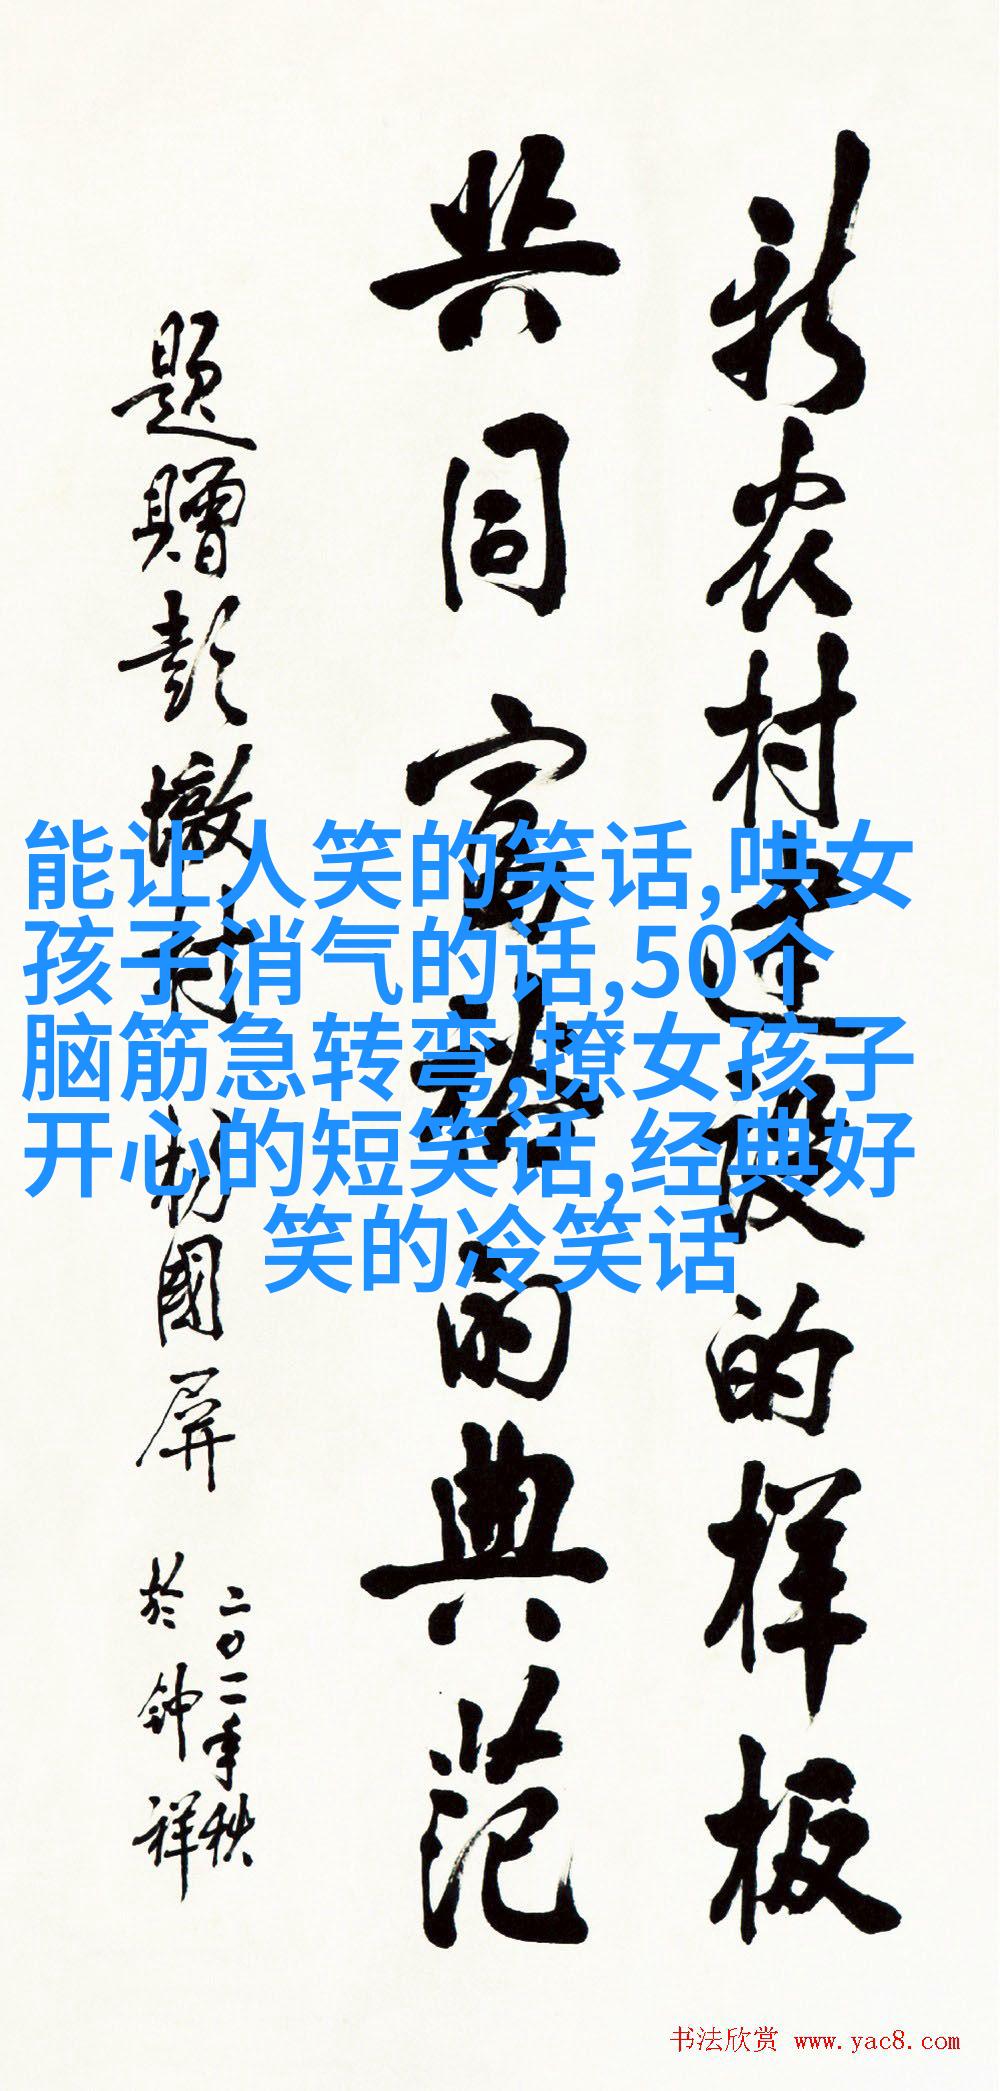 新农村建设的样板
共同富裕的典范
题赠彭墩村 国屏
二〇一一年秋
於钟祥
能让人笑的笑话,哄女
孩子消气的话,50个
脑筋急转弯,撩女孩子
开心的短笑话,经典好
笑的冷笑话
书法欣赏 www.yac8.com